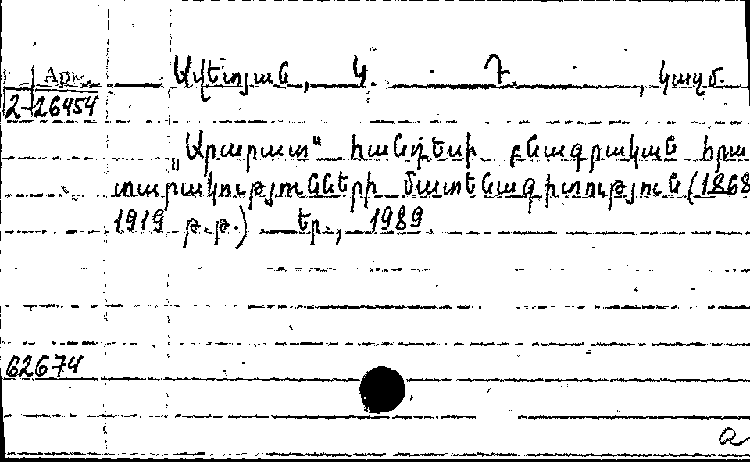 Арм.
2-26454
Ավետյան, Կ. Դ., կազմ.
„Արարատ“ հանդեսի բնագրական հրա
տարակությունների մատենագիտություն (1868
1919 թ.թ.) Եր., 1989
62674
a